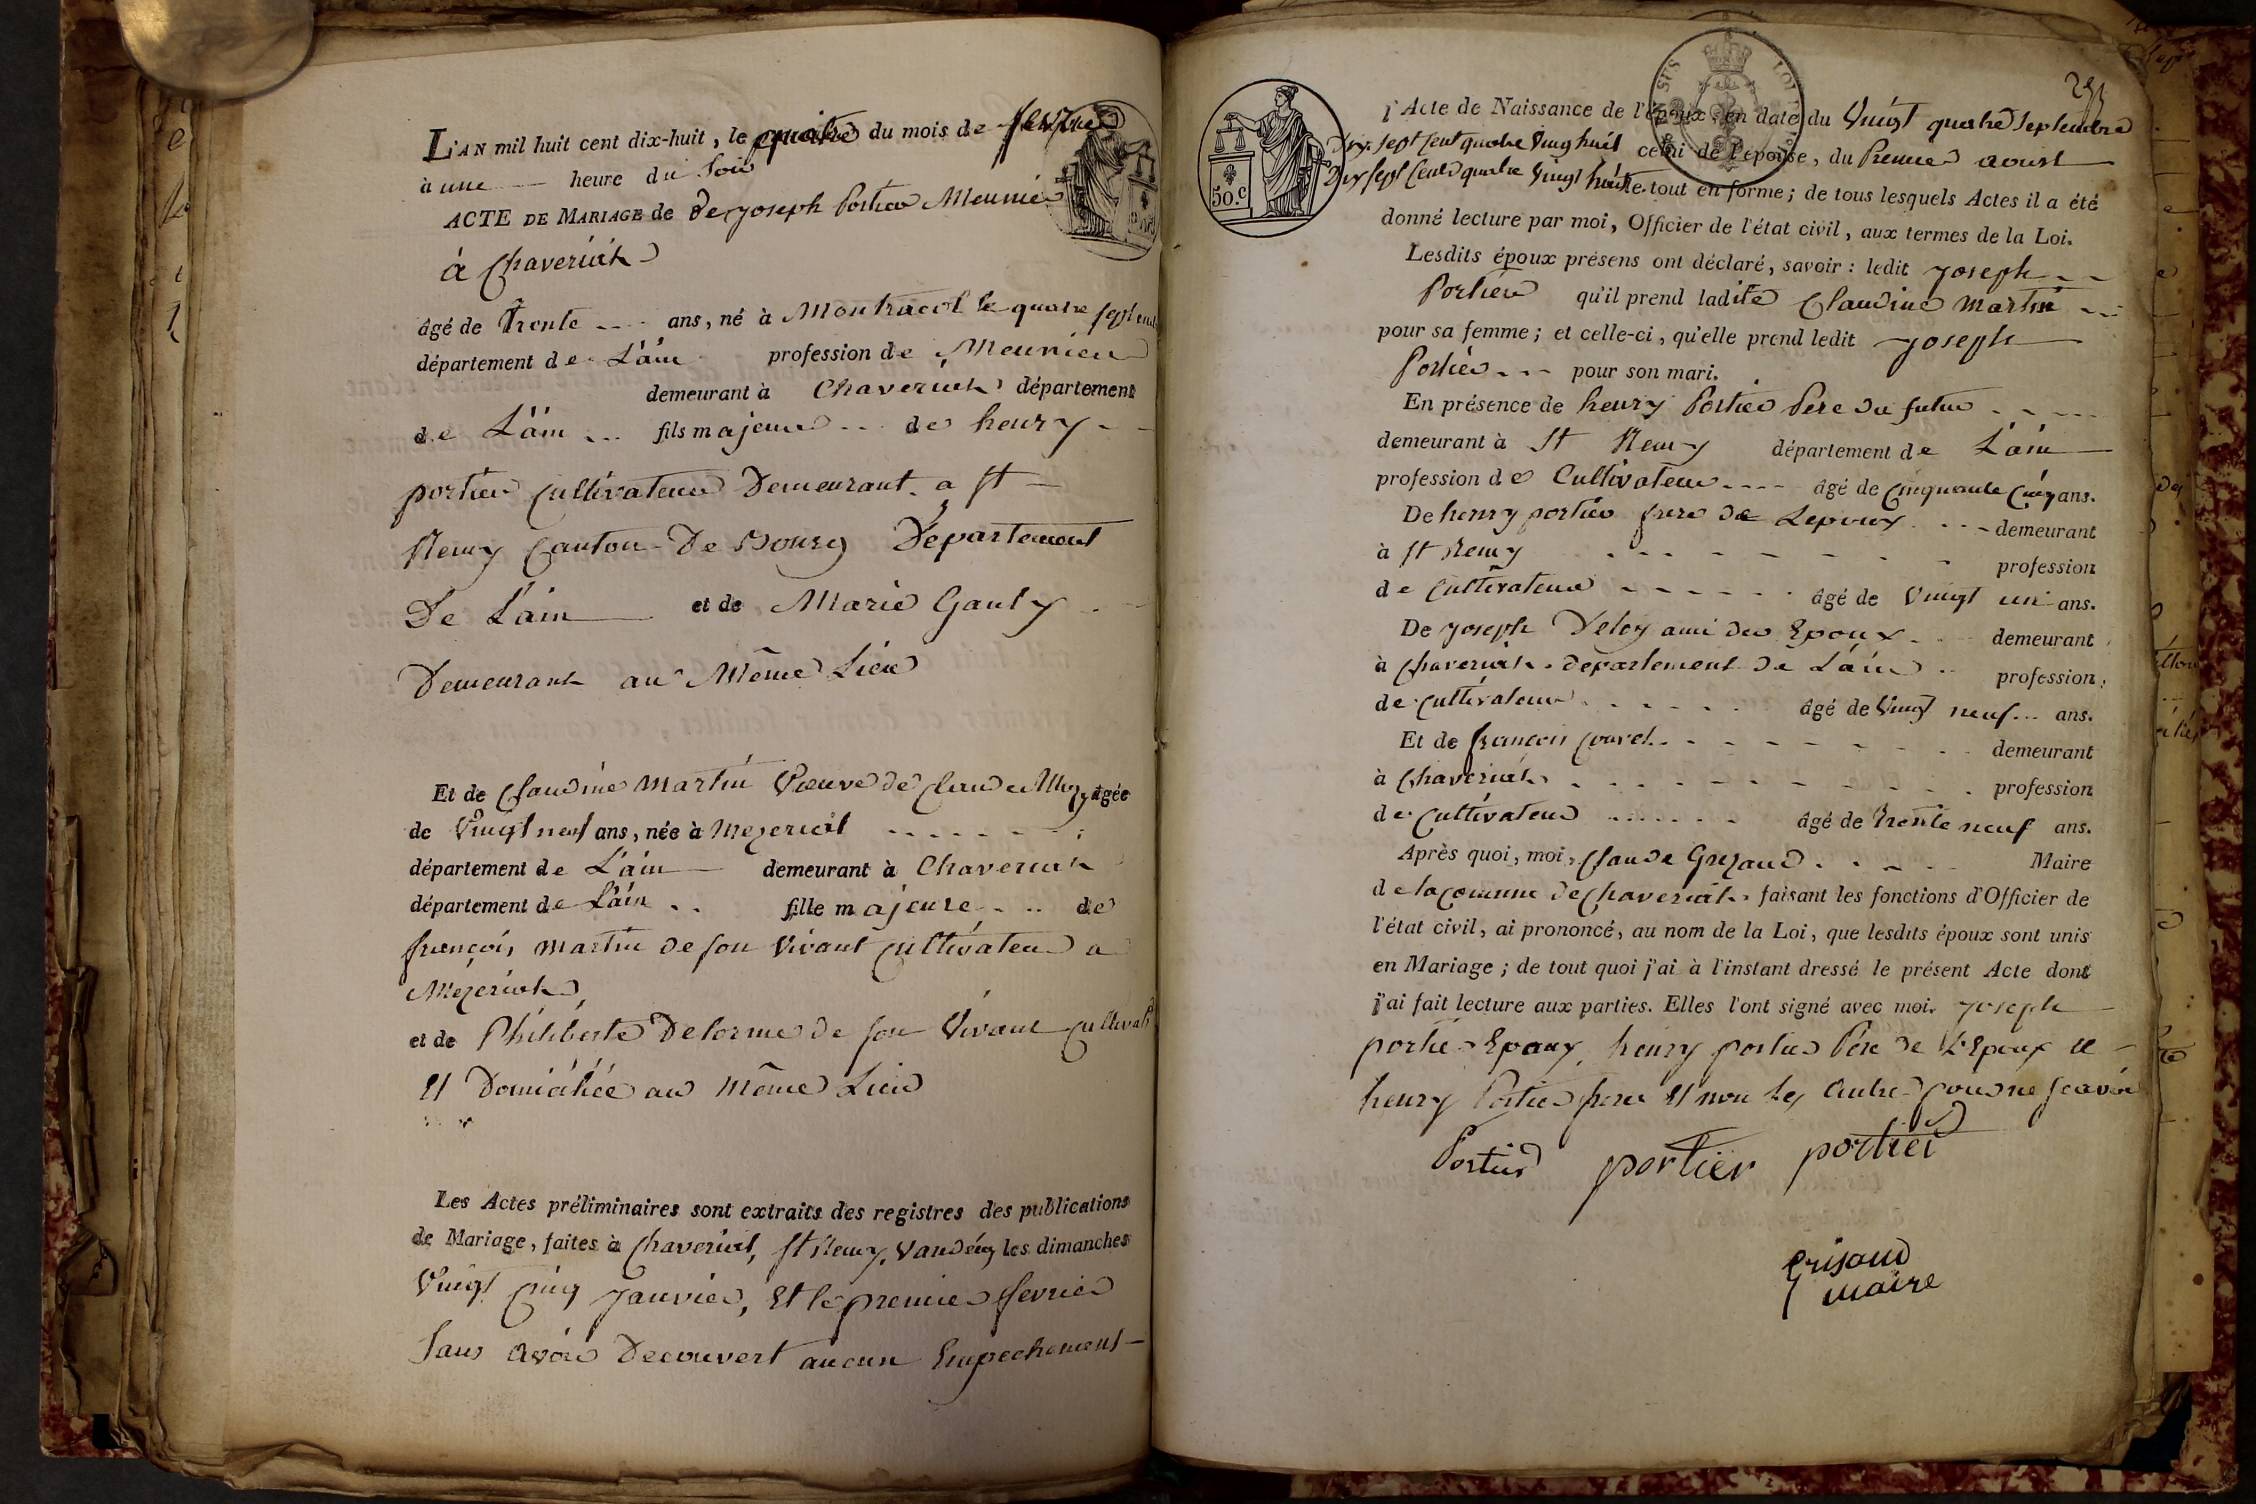 L'AN mil huit cent dix-huit, le quatre du mois de fevrier
à une heure du Soir
ACTE DE MARIAGE de De joseph Portier Meunier
à Chaveriat
âgé de Trente ans, né à Montracol le quatre septembre
département de L'ain profession de Meunier
demeurant à Chaveriat département
de L'ain fils majeur de henry
portier Cultivateur Demeurant a St
Remy Canton De Bourg Département
De L'ain et de Marie Gauly
Demeurant au Même Lieu
Et de Claudine Martin Veuve de Claude agée
de Vingt neuf ans, née à Mezeriat
département de L'ain demeurant à Chaveriat
département de L'ain fille majeure de
françois martin de son Vivant Cultivateur a
Mezeriat
et de Philiberte Delorme de son Vivant
Et Domiciliée au Même Lieu
Les Actes préliminaires sont extraits des registres des publications
de Mariage, faites à Chaveriat, St Remy, Vandeins les dimanches
Vingt Cinq Janvier, Et le premier fevrier
Sans avoir Decouvert aucun Empechement
l'Acte de Naissance de l'époux, en date du Vingt quatre Septembre
Dix sept Cent quatre Vingt huit celui de l'épouse, du Premier aoust
Dix sept Cent quatre Vingt huit le tout en forme; de tous lesquels Actes il a été
donné lecture par moi, Officier de l'état civil, aux termes de la Loi.
Lesdits époux présens ont déclaré, savoir: ledit joseph
Portier qu'il prend ladite Claudine Martin
pour sa femme; et celle-ci, qu'elle prend ledit joseph
Portier pour son mari.
En présence de henry Portier Père du futur
demeurant à St Remy département de L'ain
profession de Cultivateur âgé de Cinquante Cinq ans.
De henry portier frere de Lepoux demeurant
à St Remy profession
de Cultivateur âgé de Vingt un ans.
De joseph Deloy ami des Epoux demeurant
à Chaveriat departement de L'ain profession
de Cultivateur âgé de Vingt neuf ans.
Et de françois demeurant
à Chaveriat profession
de Cultivateur âgé de Trente neuf ans.
Après quoi, moi, Claude Grizaud Maire
de la Comune de Chaveriat faisant les fonctions d'Officier de
l'état civil, ai prononcé, au nom de la Loi, que lesdits époux sont unis
en Mariage; de tout quoi j'ai à l'instant dressé le présent Acte dont
j'ai fait lecture aux parties. Elles l'ont signé avec moi. joseph
portier Epoux, henry portier Père de L'Epoux et
henry Portier frere Et non les Autres pour ne scavoir
Portier portier portier
grisaud
maire
50.c